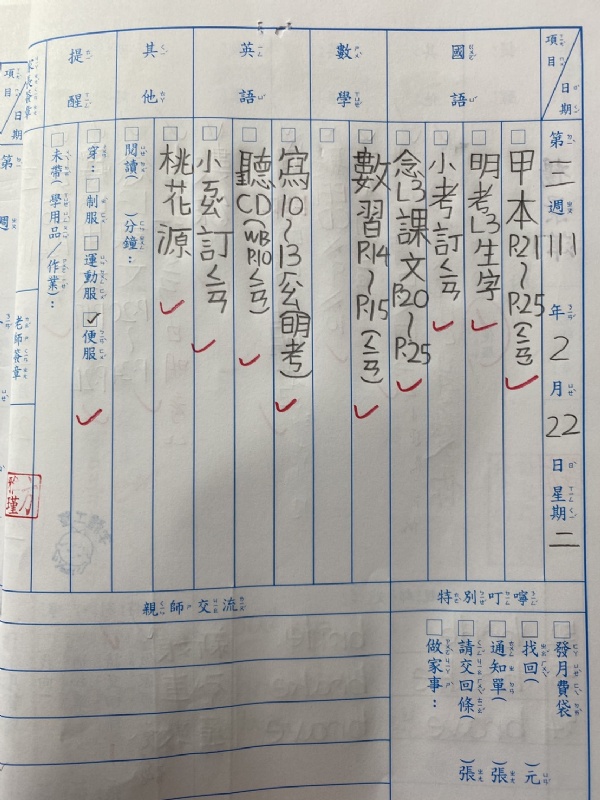 項目 日期
國語
數學
英語
其他
提醒
家長簽章
第三週
111年2月22日星期二
甲本P.21~P.25(ㄑㄢ)
明考L3生字
小考訂ㄑㄢ
念L3課文P.20~P.25
數習P.14~P.15(ㄑㄢ)
寫10~13(公明考)
聽CD(WB P.10ㄑㄢ)
訂ㄑㄢ
桃花源
閱讀( )分鐘:
穿:制服 運動服 便服
未帶(學用品/作業):
老師簽章
瑾
特別叮嚀
發月費袋
找回( )元
通知單( )張
請交回條( )張
做家事:
親師交流
項目 日期
第
週